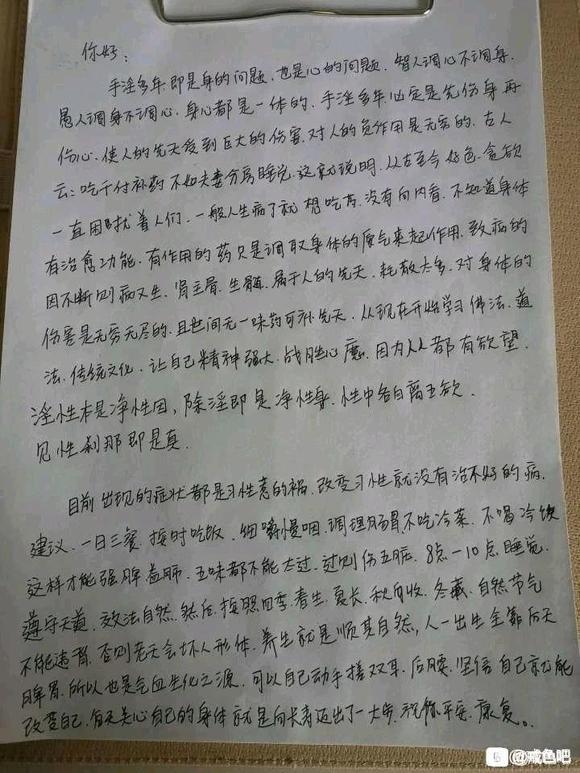 你好:
手淫多年.即是身的问题.也是心的问题.智人调心不调身.
愚人调身不调心.身心都是一体的.手淫多年.必定是先伤身再
伤心.使人的先天受到巨大的伤害.对人的负作用是无穷的.古人
云:吃千付补药不如夫妻分房睡.这就说明.从古至今好色.贪欲
一直困扰着人们.一般人生病了就想吃药.没有向内看.不知道身体
有治愈功能.有作用的药只是调取身体的原气来起作用.致病的
因不断则病又生.肾主骨.生髓.属于人的先天.耗散太多.对身体的
伤害是无穷无尽的.且世间无一味药可补先天.从现在开始学习佛法.道
法.传统文化.让自己精神强大.战胜心魔.因为人人都有欲望.
淫性本是净性因,除淫即是净性身.性中各自离五欲.
见性刹那即是真.
目前出现的症状都是习性惹的祸.改变习性就没有治不好的病.
建议.一日三餐.按时吃饭.细嚼慢咽.调理肠胃.不吃冷菜.不喝冷饮
这样才能强脾益肺.五味都不能太过.过则伤五脏.8点-10点睡觉.
遵守天道.效法自然.然后.按照四季.春生.夏长.秋收.冬藏.自然节气
不能违背.否则老天会坏人形体.养生就是顺其自然,人一出生全靠后天
脾胃.所以也是气血生化之源.可以自己动手搓双耳.后腰.坚信自己就能
改变自己.每天关心自己的身体就是向长寿迈出了一大步.祝你平安.康复。
@戒色吧